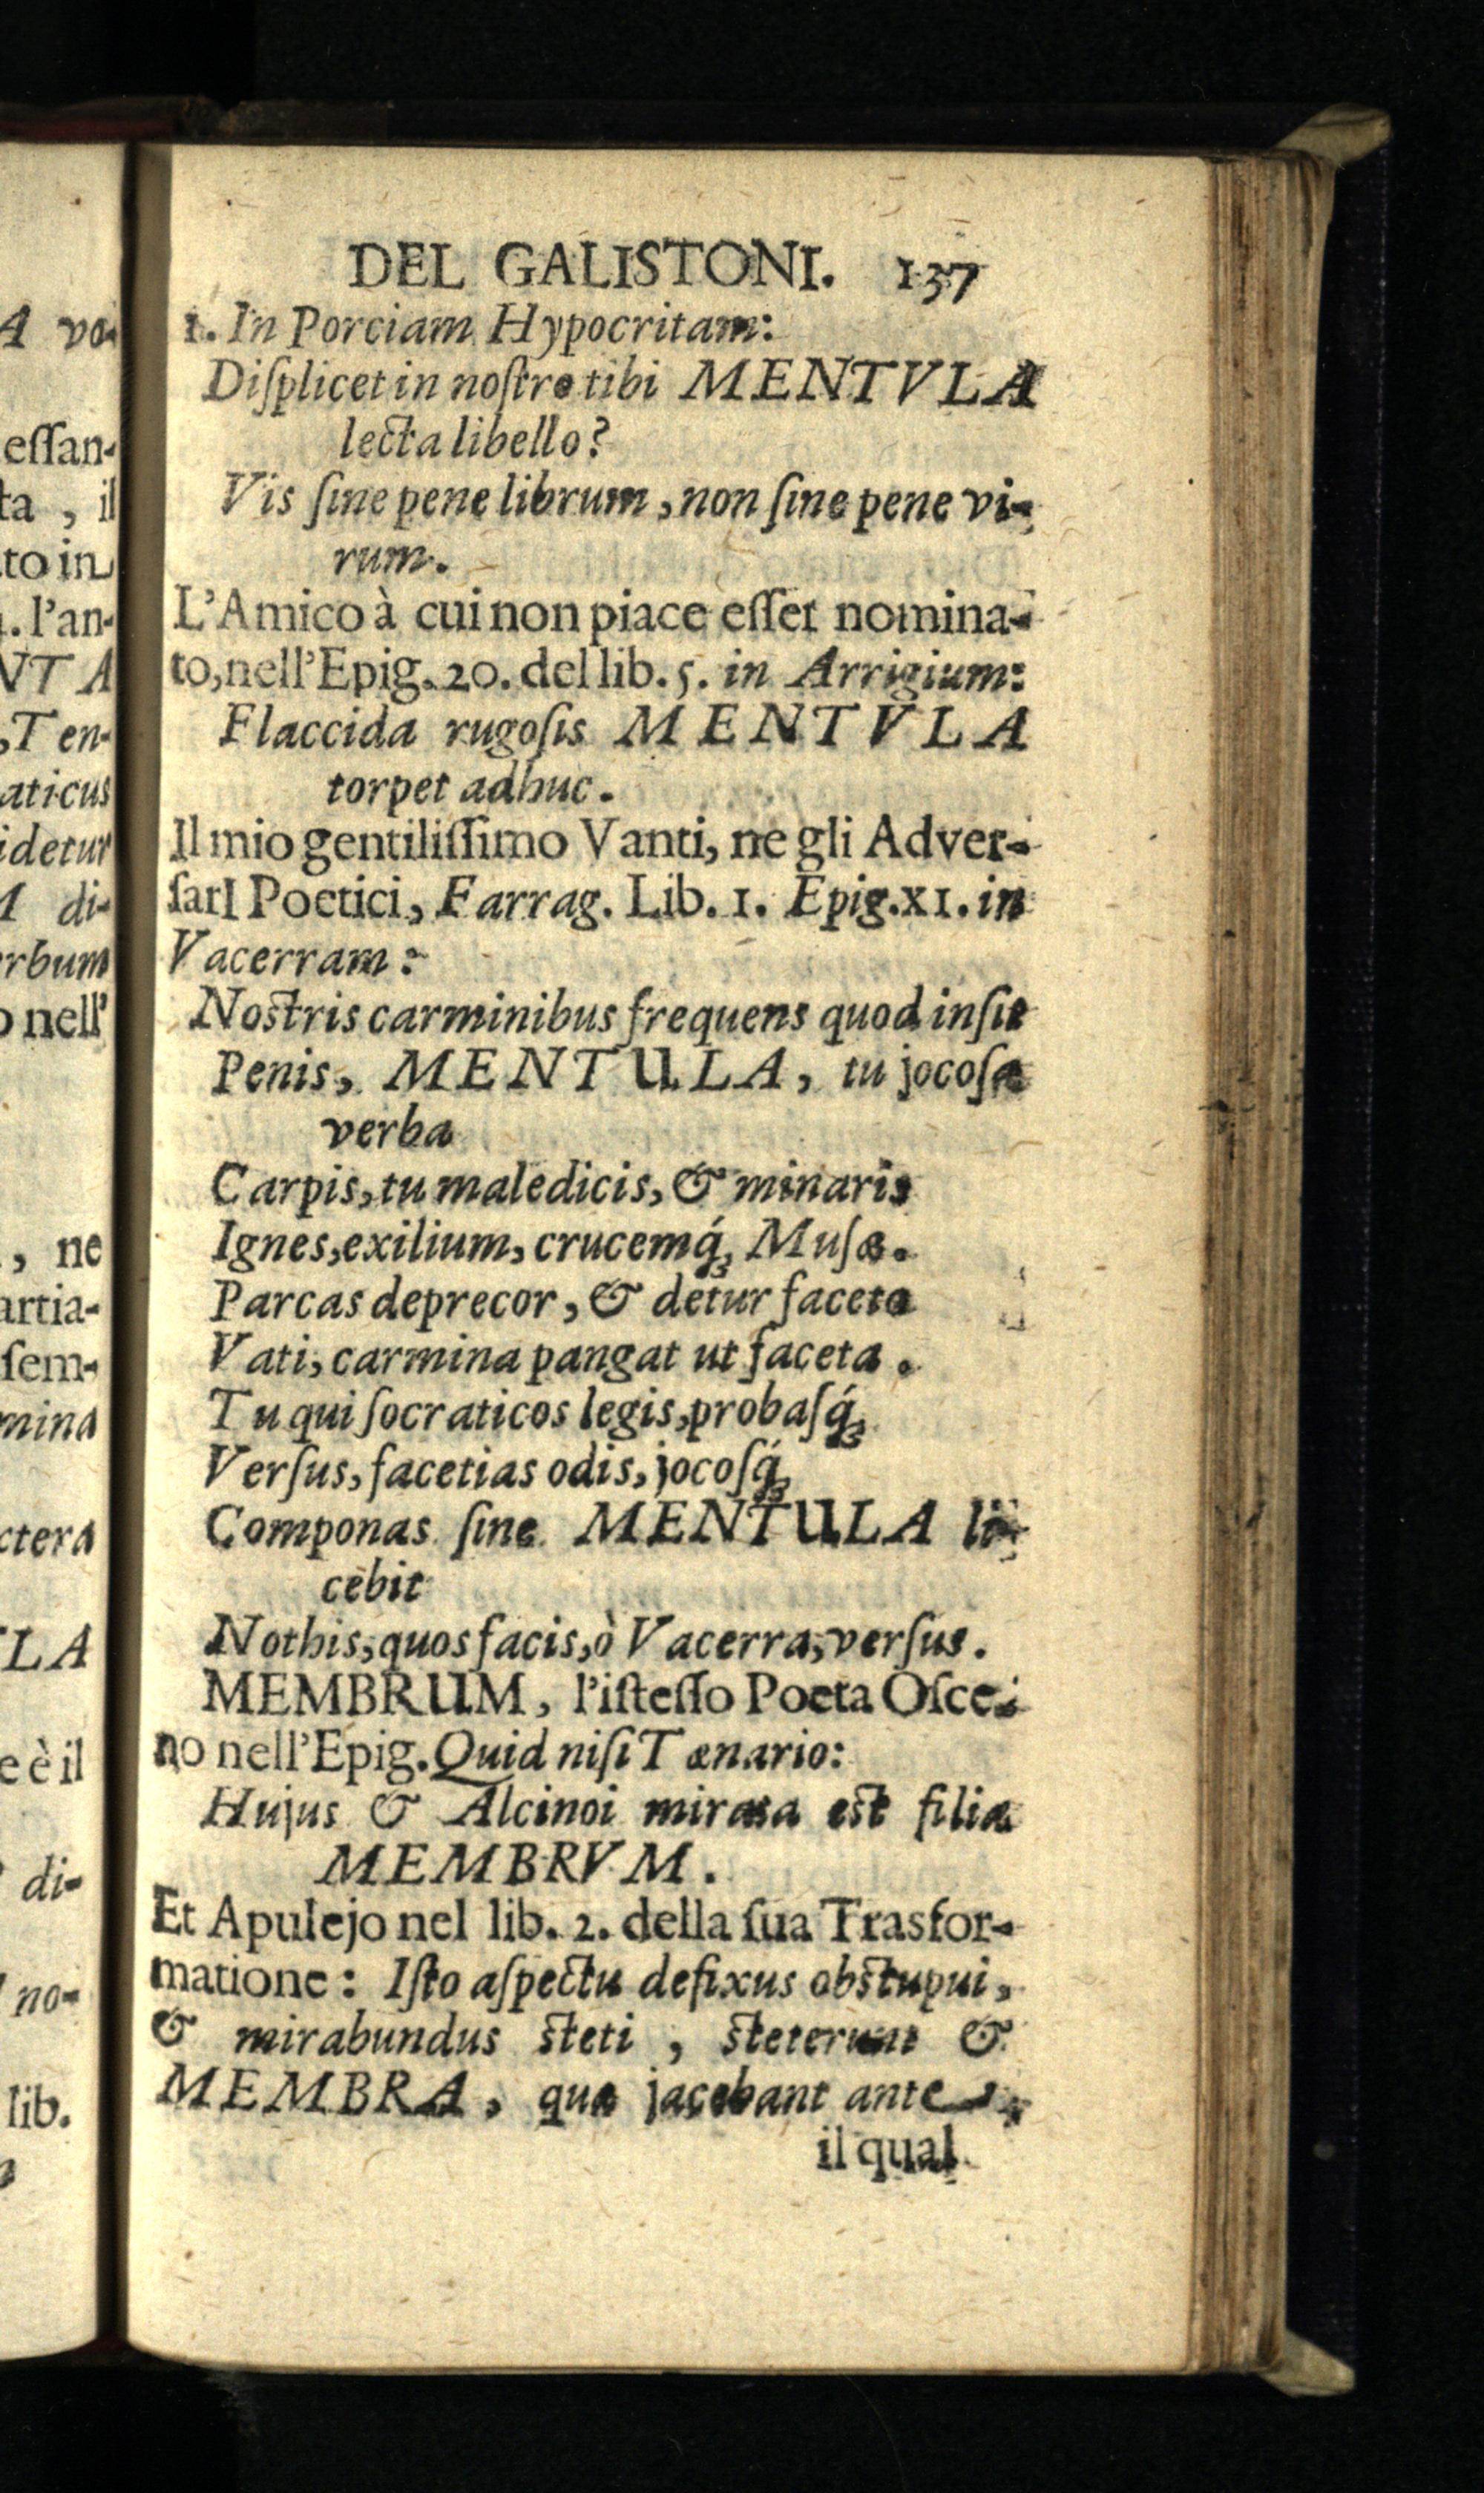 DEL GALISTONI. 137
1. In Porciam Hypocritam:
Diſplicet in noſtro tibi MENTVLA
lecta libello?
Vis ſine pene librum, non ſine pene vi-
rum.
L'Amico à cui non piace eſſer nomina-
to, nell'Epig. 20. del lib. 5. in Arrigium:
Flaccida rugoſis MENTVLA
torpet adhuc.
Il mio gentiliſſimo Vanti, ne gli Adver-
ſarI Poetici, Farrag. Lib. 1. Epig. XI. in
Vacerram:
Nostris carminibus frequens quod inſit
Penis, MENTULA, tu jocoſa
verba
Carpis, tu maledicis, & minaris
Ignes, exilium, crucemq́; Muſæ.
Parcas deprecor, & detur faceto
Vati, carmina pangat ut faceta.
Tu qui ſocraticos legis, probaſq́;
Verſus, facetias odis, jocoſq́;
Componas ſine MENTULA li-
cebit
Nothis, quos facis, ò Vacerra, verſus.
MEMBRUM, l'iſteſſo Poeta Oſce-
no nell'Epig. Quid niſi Tænario:
Hujus & Alcinoi mirata est filia
MEMBRVM.
Et Apulejo nel lib. 2. della ſua Trasfor-
matione: Iſto aſpectu defixus obstupui,
& mirabundus steti, steterunt &
MEMBRA, quæ jacebant ante,
il qual
A vo-
eſſan-
ta, il
to in
l'an-
NTA
, Ten-
aticus
idetur
di-
erbum
o nell'
, ne
artia-
ſem-
mina
ctera
LA
e è il
di-
no-
lib.